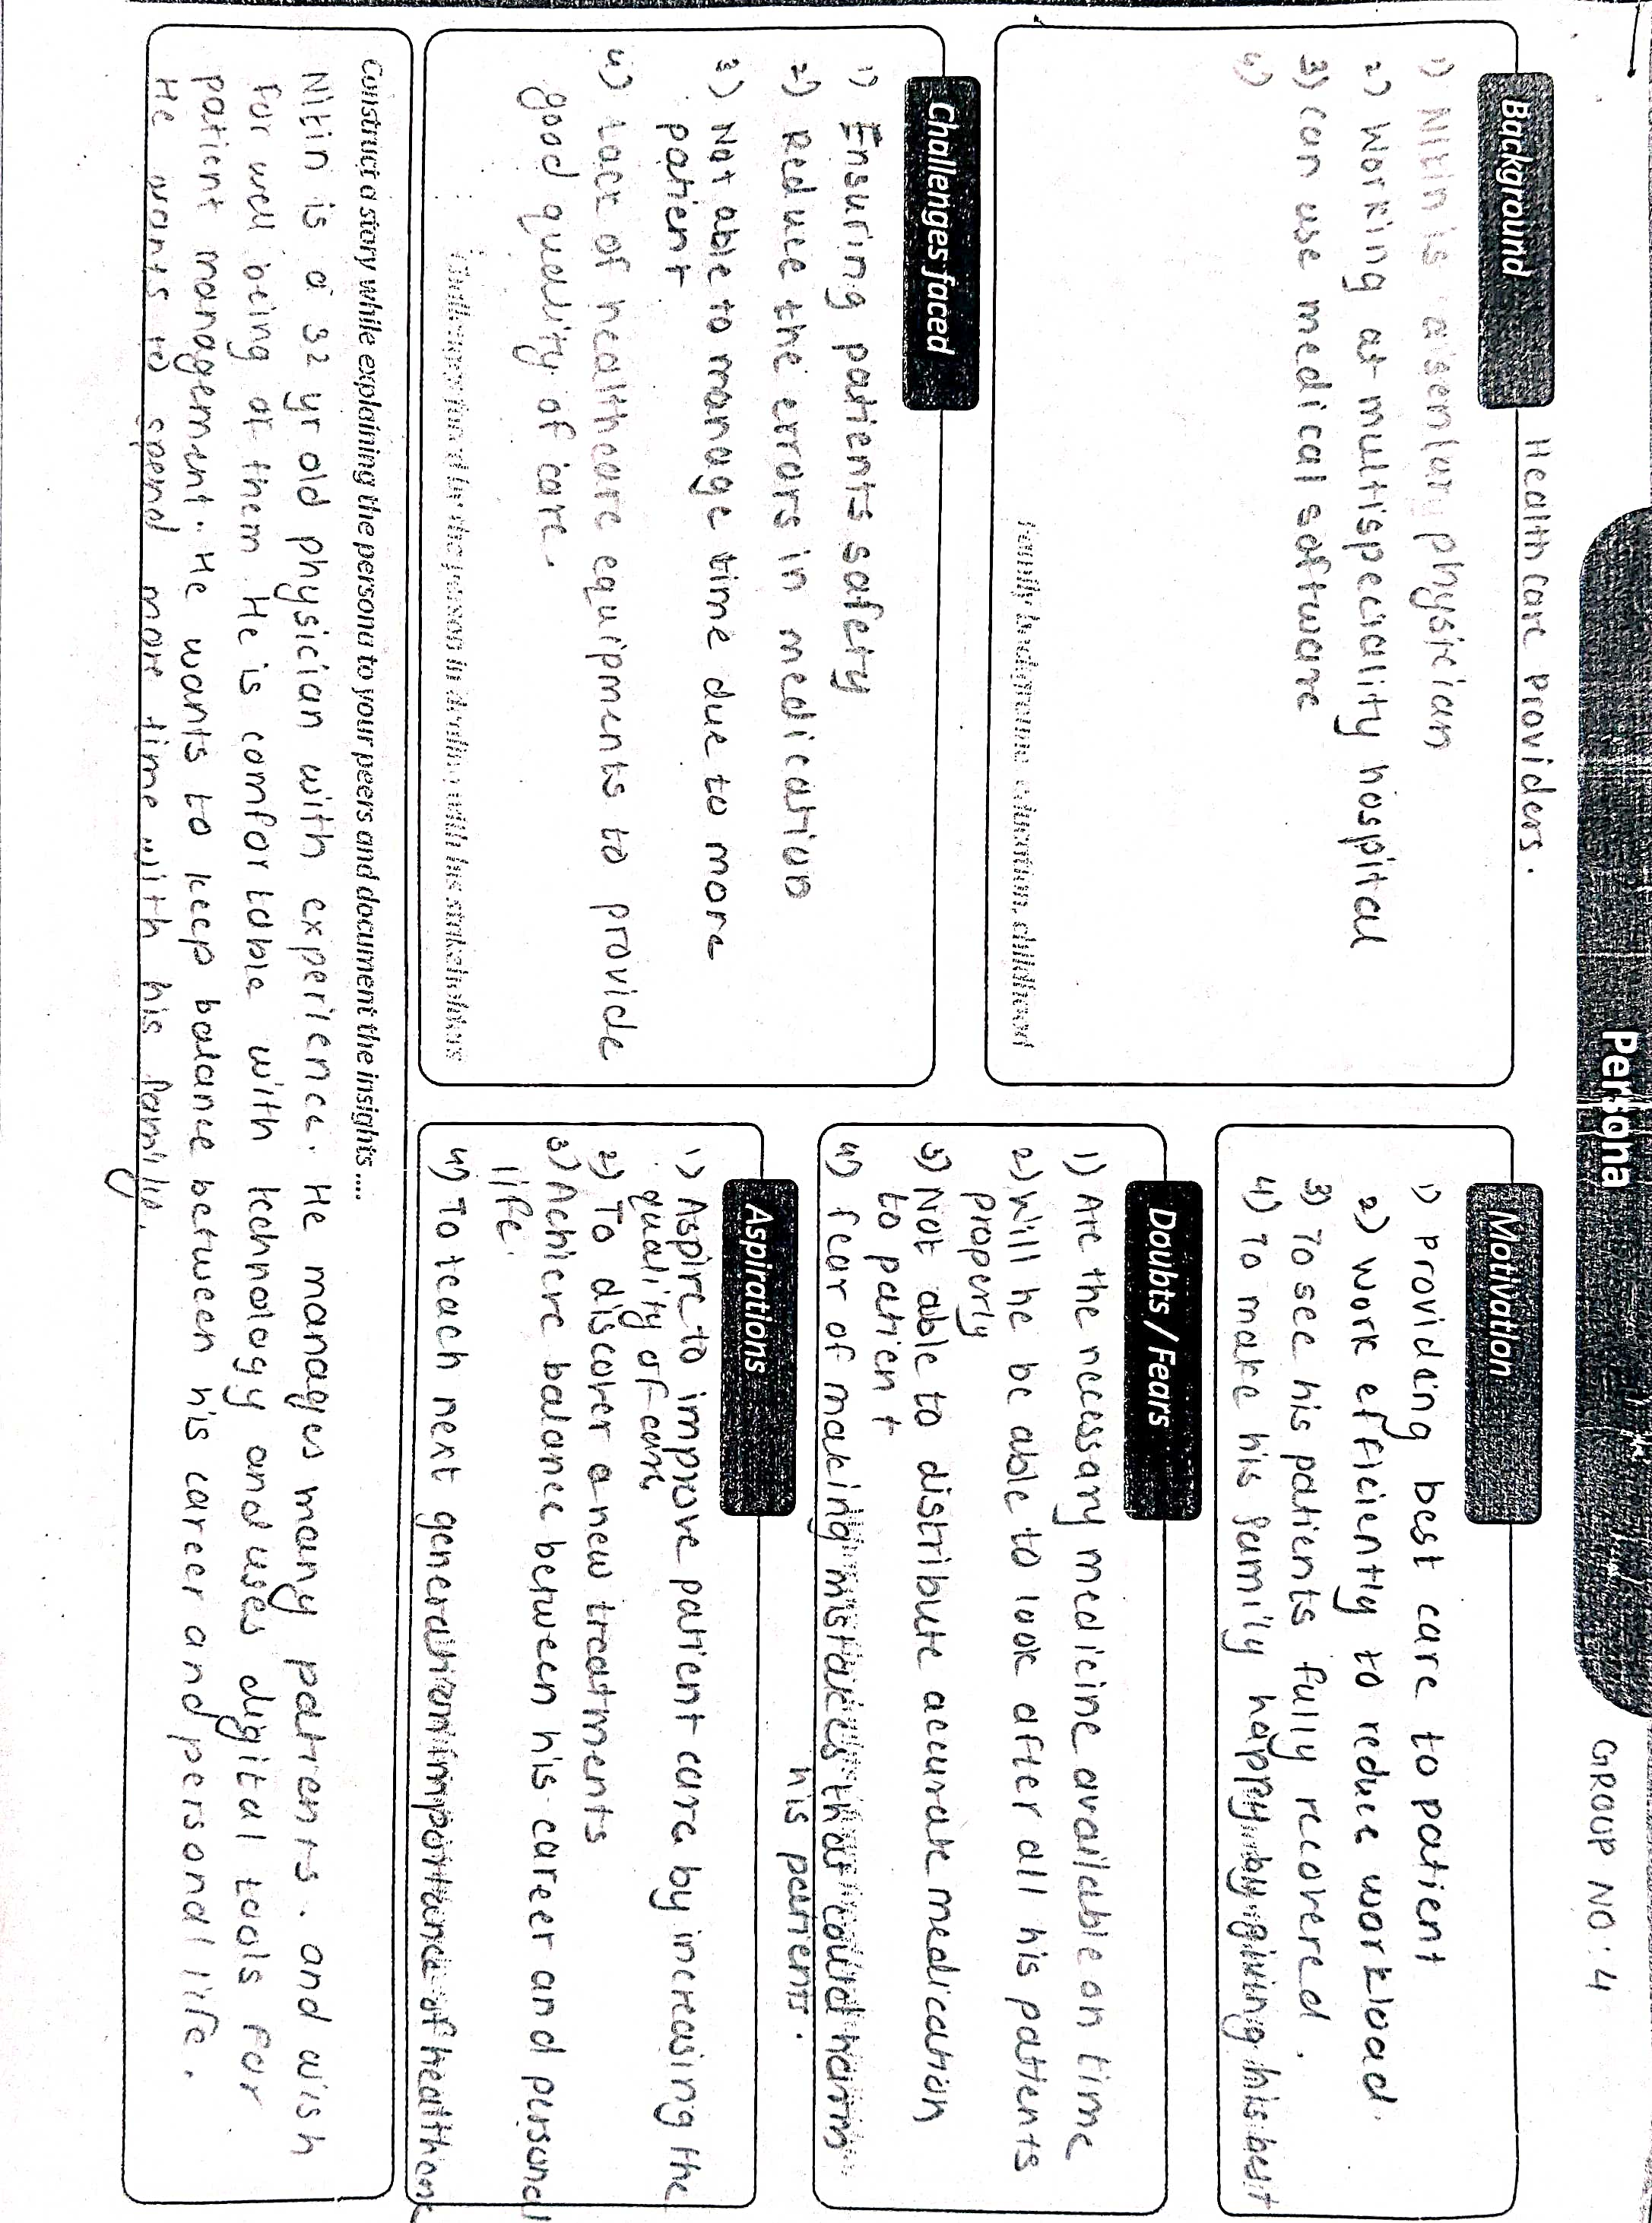 Persona
GROUP NO : 4
Healthcare Providers.
Background
1) Nitin is a senior physician
2) Working at multispeciality hospital
3) can use medical software
4)
Family background, education, childhood
Challenges faced
1) Ensuring patients safety
2) Reduce the errors in medication
3) Not able to manage time due to more
patient
4) Lack of healthcare equipments to provide
good quality of care.
Challenges faced by the person in dealing with his stakeholders
Motivation
1) Providing best care to patient
2) Work efficiently to reduce workload.
3) To see his patients fully recovered.
4) To make his family happy by giving his best
Doubts / Fears
1) Are the necessary medicine available on time
2) Will he be able to look after all his patients
properly
3) Not able to distribute accurate medication
to patient
4) fear of making mistakes that could harm
his patients.
Aspirations
1) Aspire to improve patient care by increasing the
quality of care
2) To discover a new treatments
3) Achieve balance between his career and personal
life.
4) To teach next generation importance of healthcare
Construct a story while explaining the persona to your peers and document the insights....
Nitin is a 32 yr old physician with experience. He manages many patients. and wish
for well being of them He is comfortable with technology and uses digital tools for
patient management. He wants to keep balance between his career and personal life.
He wants to spend more time with his family.